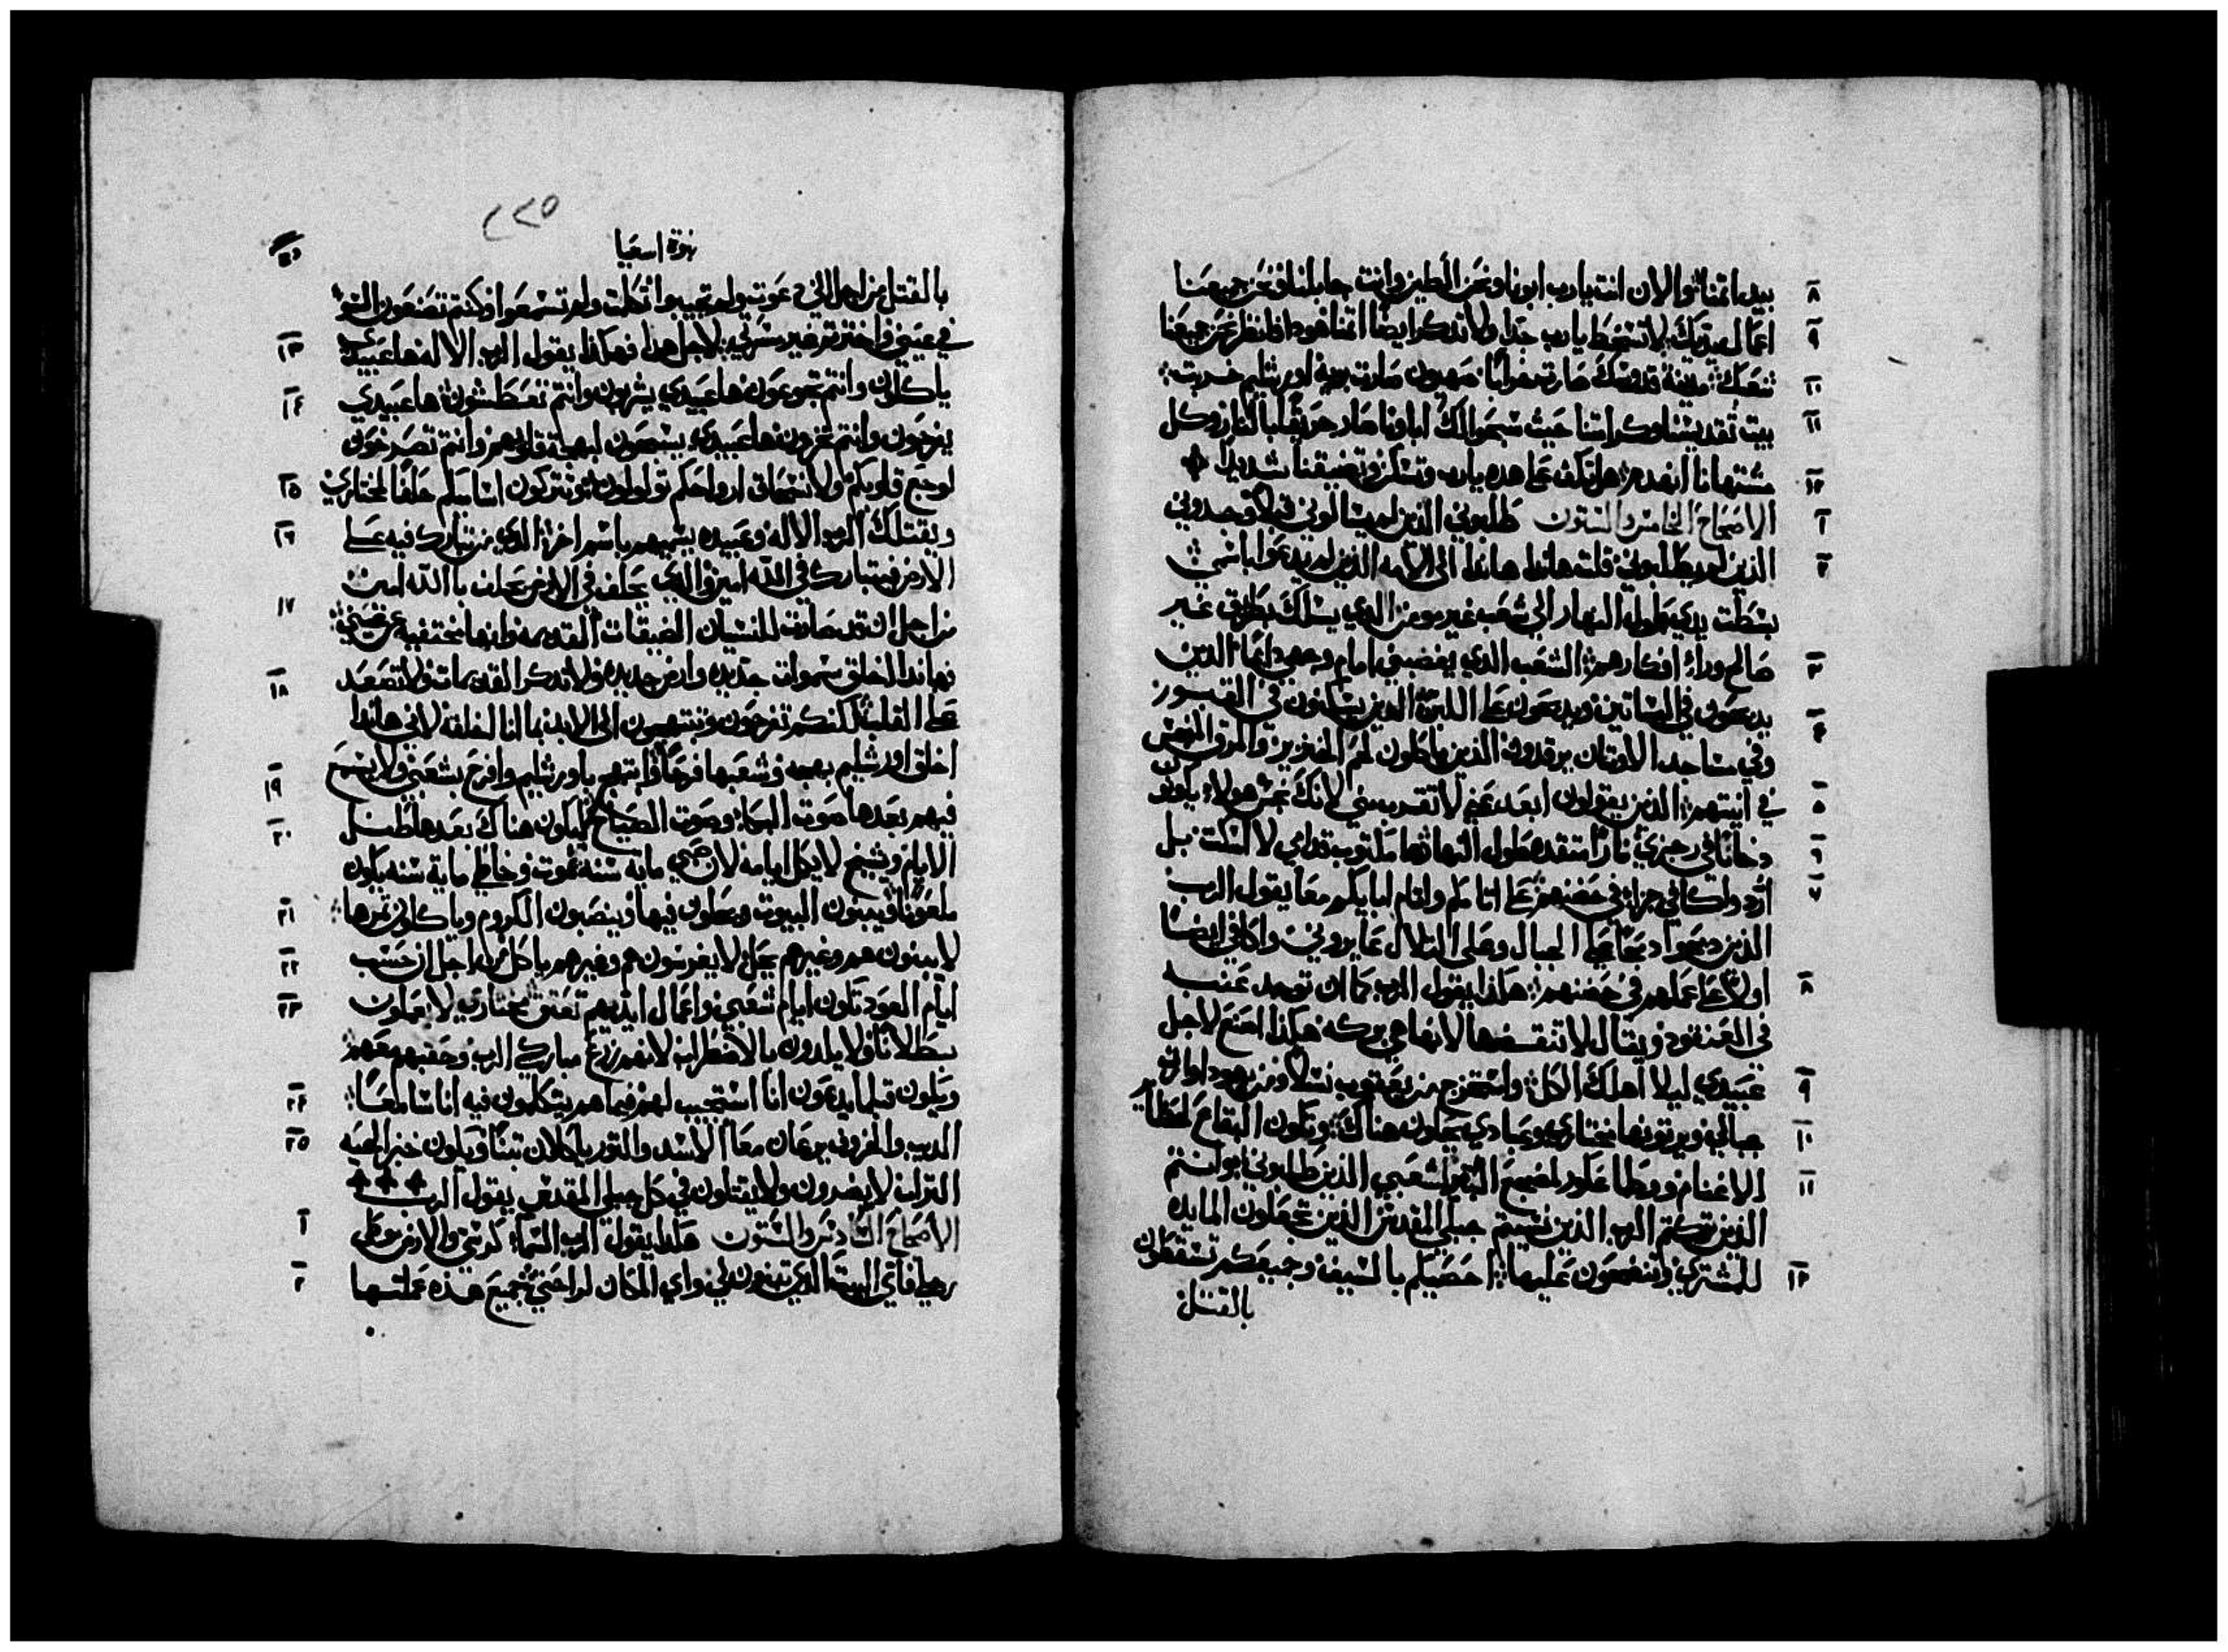 ٨ بيد اثمنا والان انت يارب ابونا ونحن الطين وانت جابلنا ونحن جميعنا
٩ اعمال يديك لا تسخط يارب جدا ولا تدكر ايضا اثمنا هودا فانظر نحن جميعنا
١٠ شعبك مدينة قدوسك صارت قفرا صهيون صارت بريه اورشليم خربت
١١ بيت تقديسنا وكرامتنا حيث سبحوا لك اباونا صار حريقا بالنار وكل
١٢ مشتهانا انهدم هل تكف على هده يارب وتسكت وتضيقنا شديدا
١ الاصحاح الخامس والستون طلبوني الذين لم يسالوني قبلا وجدوني
٢ الذين لم يطلبوني قلت هاندا هاندا الى الامه الذين لم يدعوا باسمي
بسطت يدي طول النهار الى شعب غير مومن الدي يسلك بطريق غير
٣ صالح وراء افكارهم الشعب الدي يغضبني امام وجهي دايما الدين
٤ يدبحون في البساتين ويدبحون على اللبن الدين يسكنون في القبور
وفي مساجد الاوثان يرقدون الذين ياكلون لحم الخنزير والمرق النجس
٥ في انيتهم الذين يقولون ابعد عني لا تقترب مني لانك نجس هولاء يكونو
٦ دخانا في رجزي نارا متقده طول النهار ها مكتوب قدامي لا اسكت بل
٧ ارد واكافي جزاء في حضنهم على اثامكم واثام ابايكم معا يقول الرب
الذين دبحوا دبحا على الجبال وعلى التلال عايروني واكافي ايضا
٨ اولا على عملهم في حضنهم هكذا يقول الرب كما ان توجد عنبه
في العنقود ويقال لا تفسدها لانها هي بركه هكذا اصنع لاجل
٩ عبيدي ليلا اهلك الكل واستخرج من يعقوب نسلا ومن يهودا وارث
١٠ جبالي ويرثونها مختاري وعبادي يحلون هناك وتكون البقاع لحظاير
١١ الاغنام ووطا عكور لمضجع البقر لشعبي الذين طلبوني وانتم
الذين تركتم الرب الذين نسيتم جبلي المقدس الذين تجعلون المايده
١٢ للمشتري وتنضحون عليها احصيكم بالسيف وجميعكم تسقطون
بالقتل
٢٢٥
نبوة اسعيا
بالقتل من اجل اني دعوت ولم تجيبوا تكلمت ولم تسمعوا وكنتم تصنعون السو
١٣ في عيني واخترتم غير مسرتي لاجل هدا فهكذا يقول الرب الاله ها عبيدي
١٤ ياكلون وانتم تجوعون ها عبيدي يشربون وانتم تعطشون ها عبيدي
يفرحون وانتم تخزون ها عبيدي يسبحون لبهجة قلوبهم وانتم تصرخون
١٥ لوجع قلوبكم ولانسحاق ارواحكم تولولون وتتركون اسامكم حلفا لمختاري
١٦ ويقتلك الرب الاله وعبيده يسميهم باسم اخر الدي من تبارك فيه على
الارض فيتبارك في الله امين والدي يحلف في الارض يحلف بالله امين
١٧ من اجل ان قد صارت للنسيان الضيقات القديمه وانها مختفيه عن عيني
١٨ فهاندا اخلق سموات جديده وارض جديده ولا تدكر القديمات ولا تصعد
على القلب لكنكم تفرحون وتبتهجون الى الابد بما انا اخلقه لاني هاندا
١٩ اخلق اورشليم بهجه وشعبها فرحا وابتهج باورشليم وافرح بشعبي ولا يسمع
٢٠ فيهم بعدها صوت البكاء وصوت الصياح لا يكون هناك بعدها طفل
الايام وشيخ لا يكمل ايامه لان صبي مايه سنه يموت وخاطي مايه سنه يكون
٢١ ملعونا ويبنون البيوت ويحلون فيها وينصبون الكروم وياكلون ثمرها
٢٢ لا يبنون هم وغيرهم يحل لا يغرسون هم وغيرهم ياكل من اجل ان حسب
٢٣ ايام العود تكون ايام شعبي واعمال ايديهم تعتق مختاري لا يعملون
بطلانا ولا يلدون بالاضطراب لانهم زرع مباركي الرب وحفدتهم معهم
٢٤ ويكون قبلما يدعون انا استجيب لهم فيما هم يتكلمون فيه انا سامعا
٢٥ الديب والخروف يرعان معا الاسد والثور ياكلان تبنا ويكون خبز الحيه
التراب لا يضرون ولا يقتلون في كل جبلي المقدس يقول الرب
١ الاصحاح السادس والستون هكدا يقول الرب السماء كرسي والارض موطى
٢ رجلي فاي البيت الدي تبنون لي واي المكان لراحتي جميع هذه عملتها